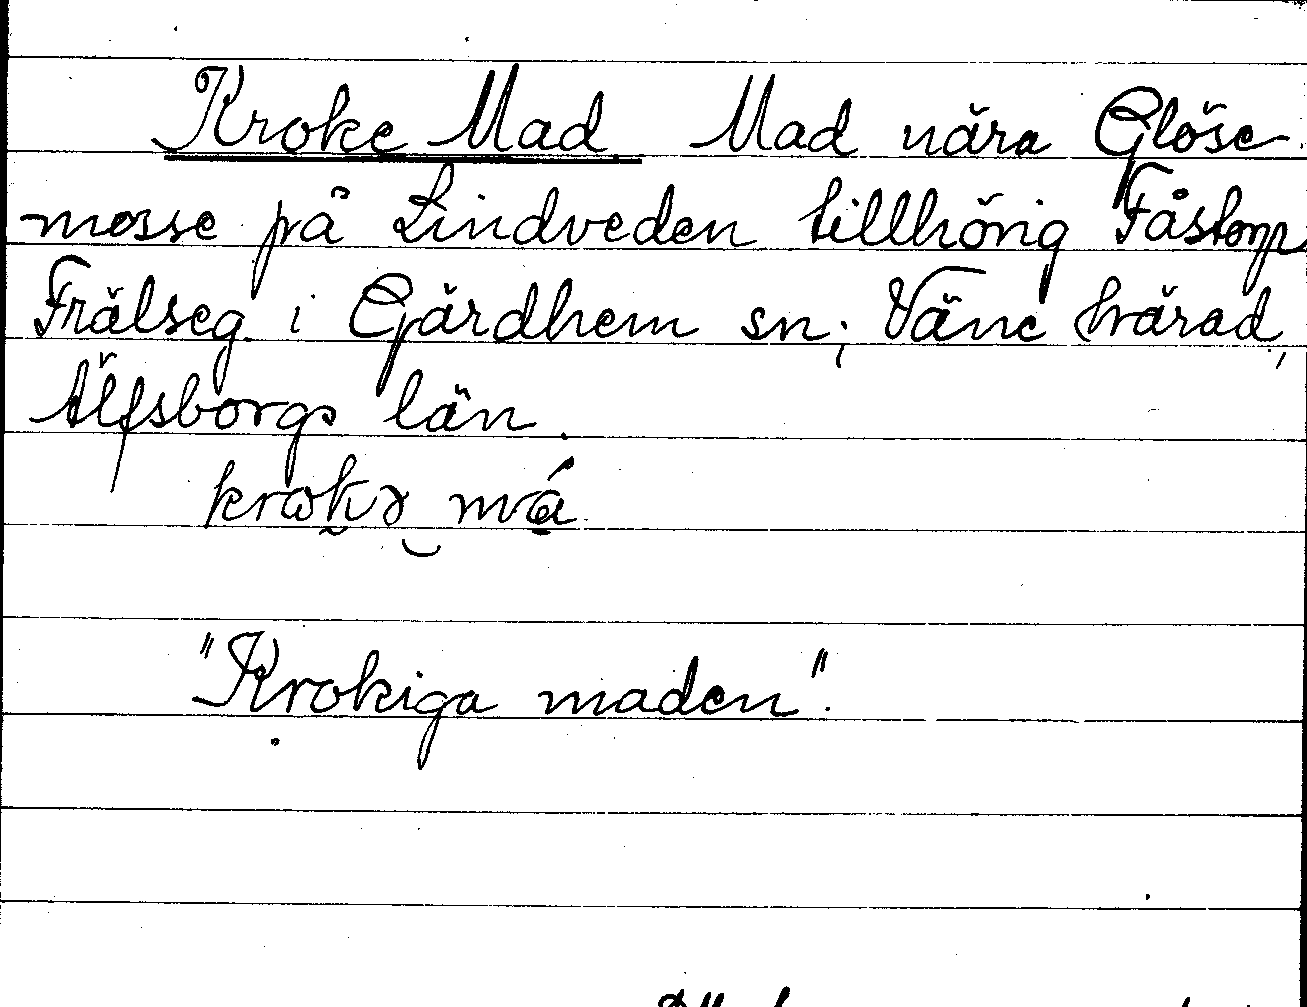 Kroke Mad. Mad nära Glöse-
mosse på Lindveden tillhörig Fåstorp
Frälseg. i Gärdhem sn; Väne härad,
Älfsborgs län.
"Krokiga maden".